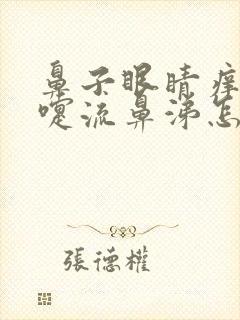 鼻子眼睛痒
嚏流鼻涕怎
張德權